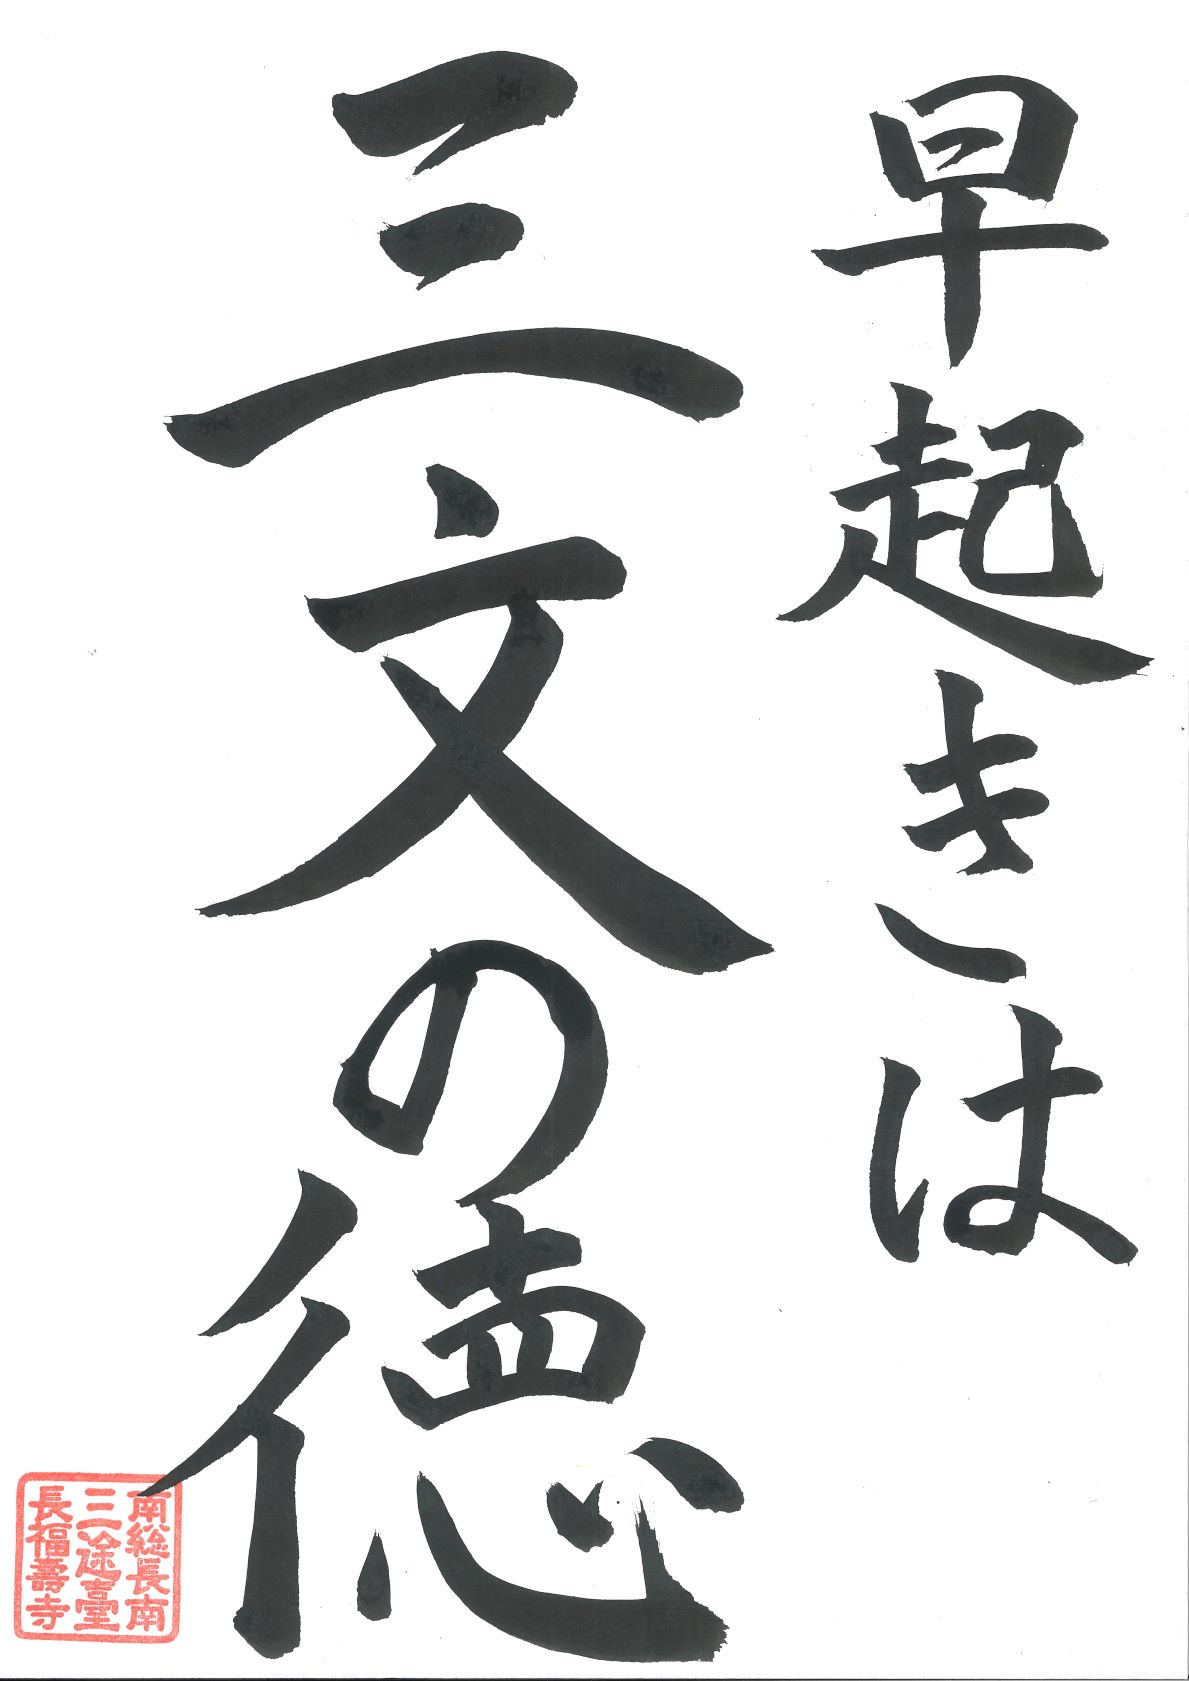 早起きは
三文の徳
南総長南
三途台
長福壽寺